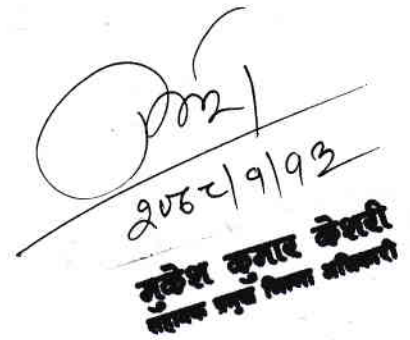 २०७८|१|१३
मुकेश कुमार केशरी
सहायक प्रमुख जिल्ला अधिकारी